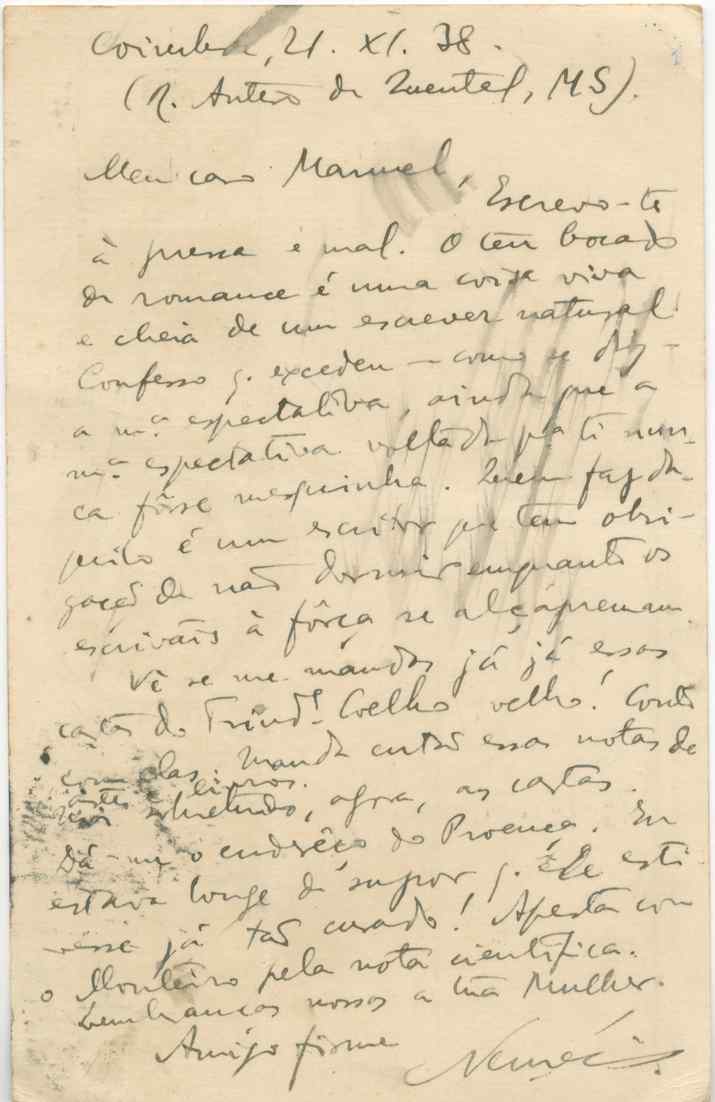 Coimbra, 21. XI. 38.
(R. Antero de Quental, MS).
Meu caro Manuel,
Escrevo-te
à pressa e mal. O teu bocado
de romance é uma coisa viva
e cheia de um escrever natural.
Confesso q. excedeu — como se diz —
a m.ª espectativa, ainda que a
m.ª espectativa voltada pª ti nun-
ca fôsse mesquinha. Quem faz da-
quilo é um escritor que tem obri-
gação de não dormir enquanto os
escrivães à fôrça se alçapremam.
Vê se me mandas já já essas
cartas do Trind.e Coelho velho! Conto
com elas. Manda então essas notas de
livros.
sobretudo, agora, as cartas.
Dá-me o enderêço do Proença. Eu
estava longe de supor q. êle esti-
vesse já tão curado! Aperta com
o Monteiro pela nota científica.
Lembranças nossas a tua Mulher.
Amigo firme
Nemésio